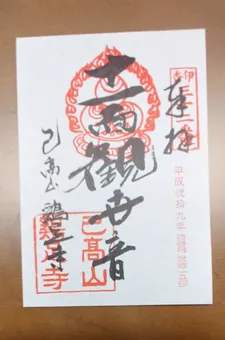 奉拝
平成弐拾九年
十一面観世音
己高山
鶏足寺
己高山
鶏足寺